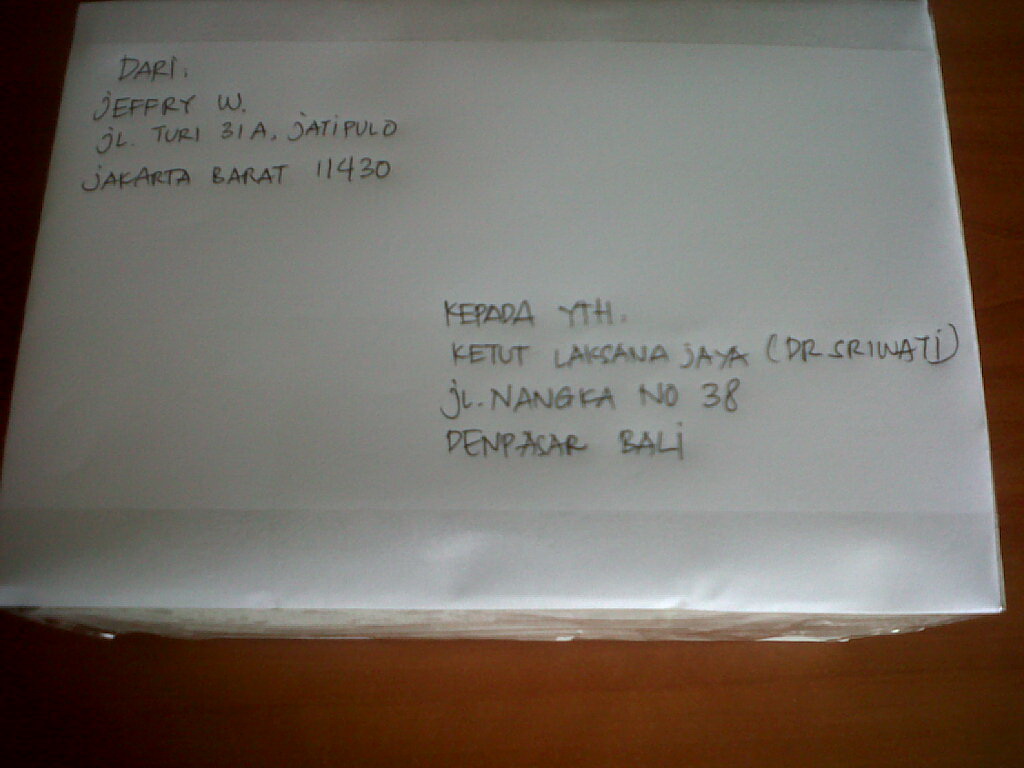 DARI.
JEFFRY W.
JL. TURI 31A, JATIPULO
JAKARTA BARAT 11430
KEPADA YTH.
KETUT LAKSANA JAYA (DR SRIWATI)
JL. NANGKA NO 38
DENPASAR BALI